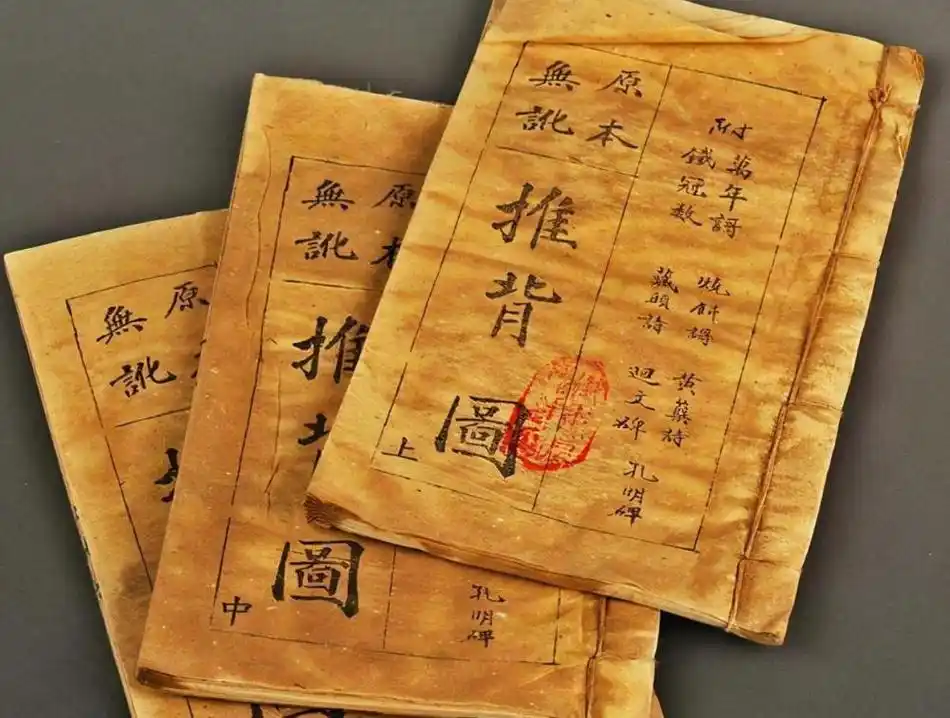 附
萬年謌
鐵冠數
藏頭詩
黄蘗詩
迴文碑
孔明碑
原本
無訛
推背圖
上
原本
無訛
推
圖
中
孔明碑
原
無訛